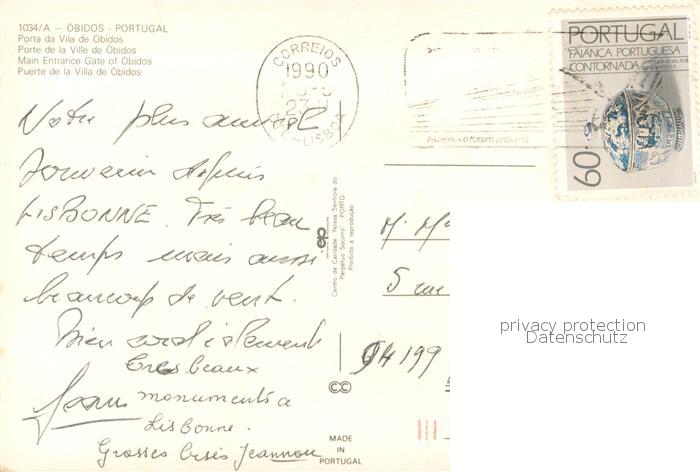 1034/A — ÓBIDOS - PORTUGAL
Porta da Vila de Óbidos
Porte de la Ville de Óbidos
Main Entrance Gate of Óbidos
Puerte de la Villa de Óbidos
CORREIOS
1990
LISBOA
Fazemos o futuro próximo
PORTUGAL
FAIANÇA PORTUGUESA
CONTORNADA
60.
Notre plus amical
souvenir depuis
LISBONNE. Très beau
temps mais aussi
beaucoup de vent.
Bien cordialement
Tres beaux
monuments a
Lisbonne.
Grosses bises Jeannou
Centro de Caridade "Nossa Senhora do
Perpétuo Socorro" PORTO
Proibida a reprodução
cp
MADE
IN
PORTUGAL
5 rue
94199
privacy protection
Datenschutz